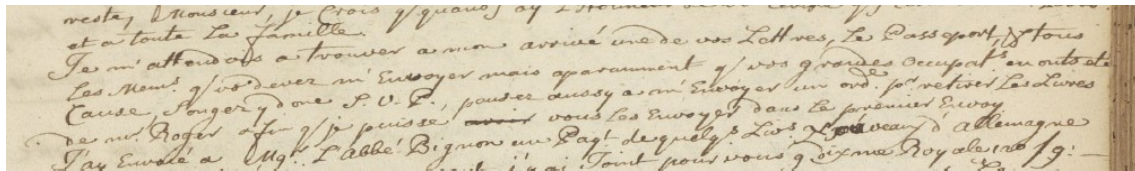 reste, Monsieur, je Crois q/ quand j'ay L'honneur
et a toute La famille.
Je m'attendois a trouver a mon arrivé une de vos Lettres, Le Passeport, & tous
Les Mem.s q/ vs devez m'Envoyer mais aparamment q/ vos grandes Occupat.s en ont eté
Cause, Songez y donc S. V. P., pensez aussy a m'Envoyer un ord.re pr. retirer Les Livres
de mr. Roger afin q/ je puisse vous Les Envoyer dans Le premier Envoy
J'ay Envoié a Mgr. L'abbé Bignon un Paqt. de quelq.s Livs. nouveaux d'allemagne
Joint pour vous Dixme Royale